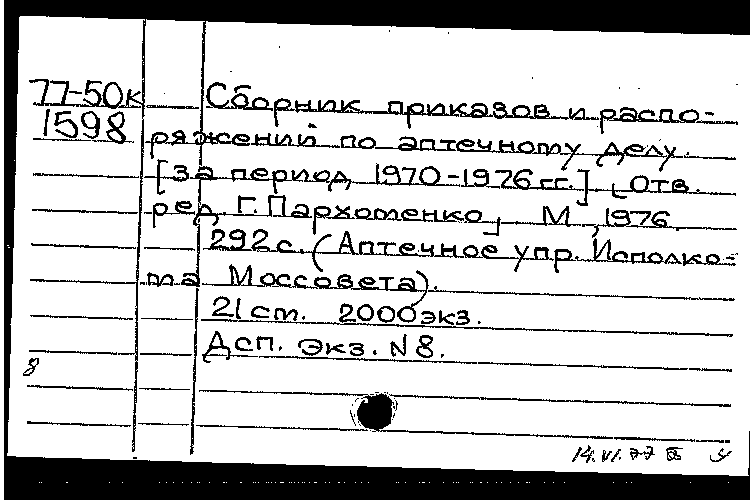 77-50к
1598
Сборник приказов и распо-
ряжений по аптечному делу.
[За период 1970-1976 гг.] [Отв.
ред. Г. Пархоменко] М., 1976.
292 с. (Аптечное упр. Исполко-
ма Моссовета).
21 ст. 2000 экз.
Дсп. Экз. N 8.
8
14.VI.77